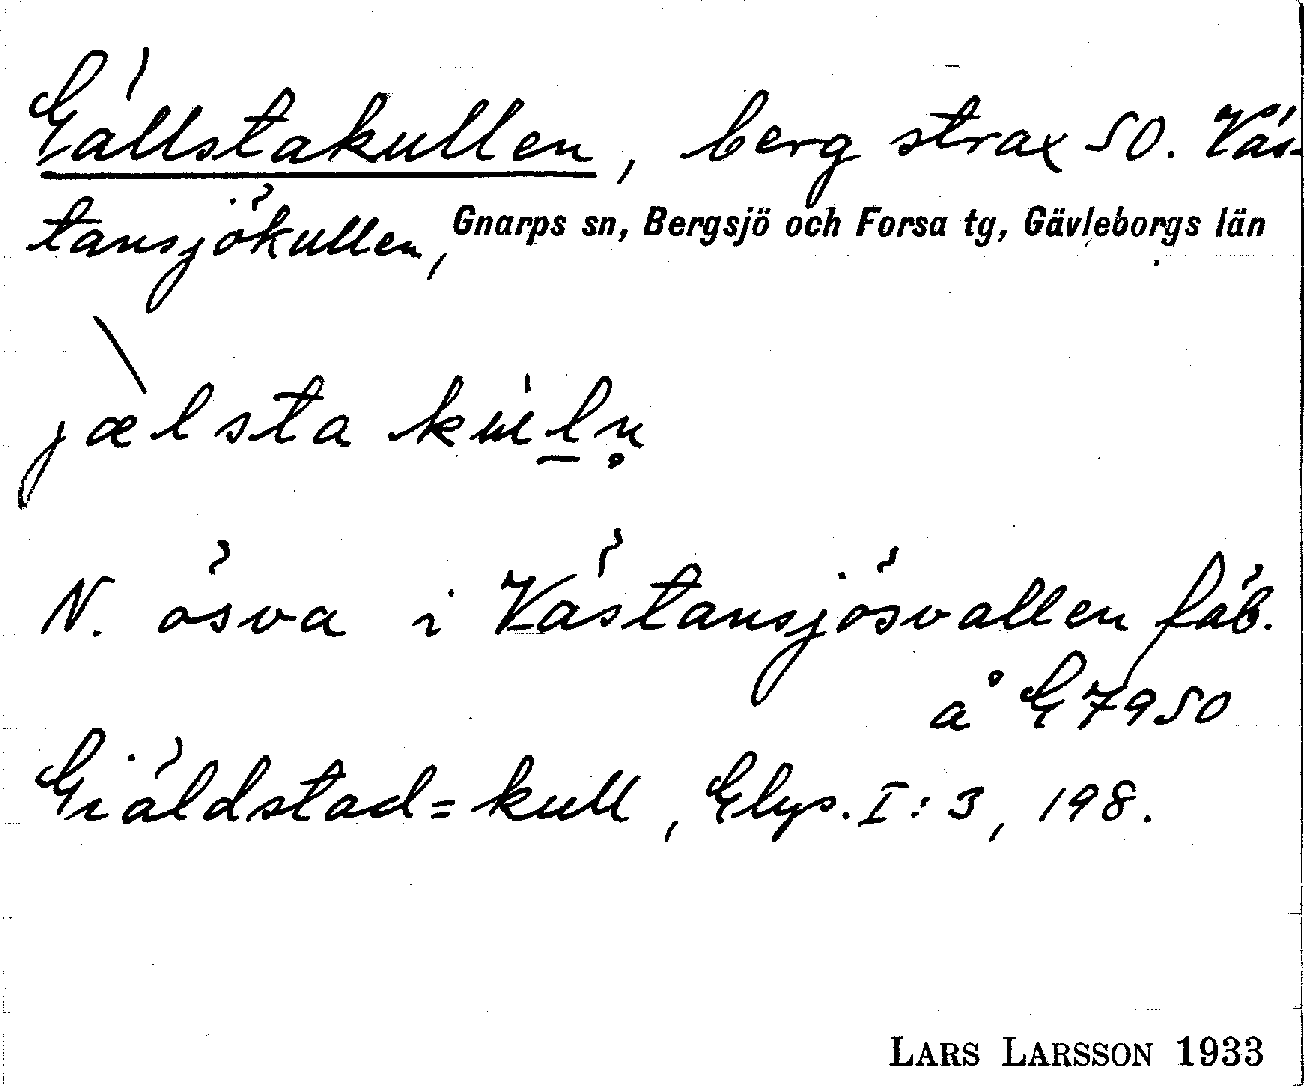 Gällstakullen, berg strax SO. Väs-
tansjökullen, Gnarps sn, Bergsjö och Forsa tg, Gävleborgs län
jælsta kuln̥
N. ösva i Västansjösvallen fäb.
å G 7950
Giäldstad=kull, Glys. I:3, 198.
LARS LARSSON 1933